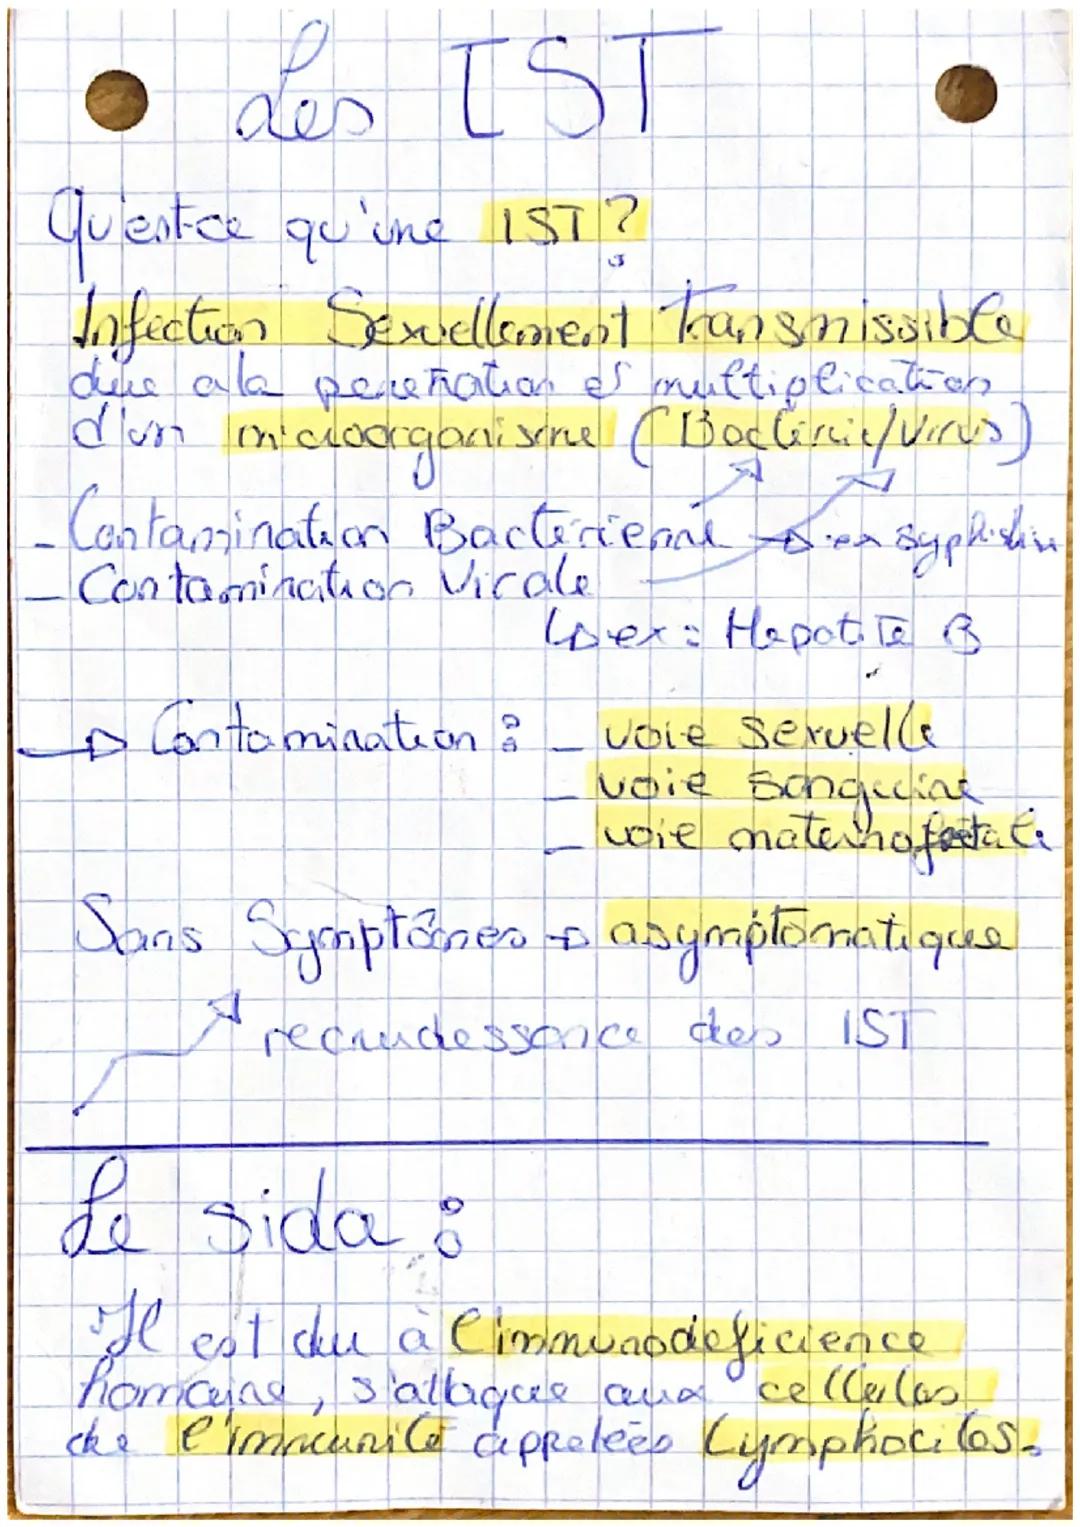 Les IST
Qu'est-ce qu'une IST ?
Infection Sexuellement Transmissible
due a la penetration et multiplication
d'un microorganisme (Bactérie/Virus)
- Contamination Bactérienne → ex
- Contamination Virale
↳ ex = Hepatite B
→ Contamination : - voie sexuelle
- voie sanguine
- voie maternofœtale
Sans Symptômes → asymptomatique
recrudessence des IST
Le sida :
Il est du à l'immunodeficience
homaine, s'attaque aux cellules
de l'immunité appelées Lymphocites.